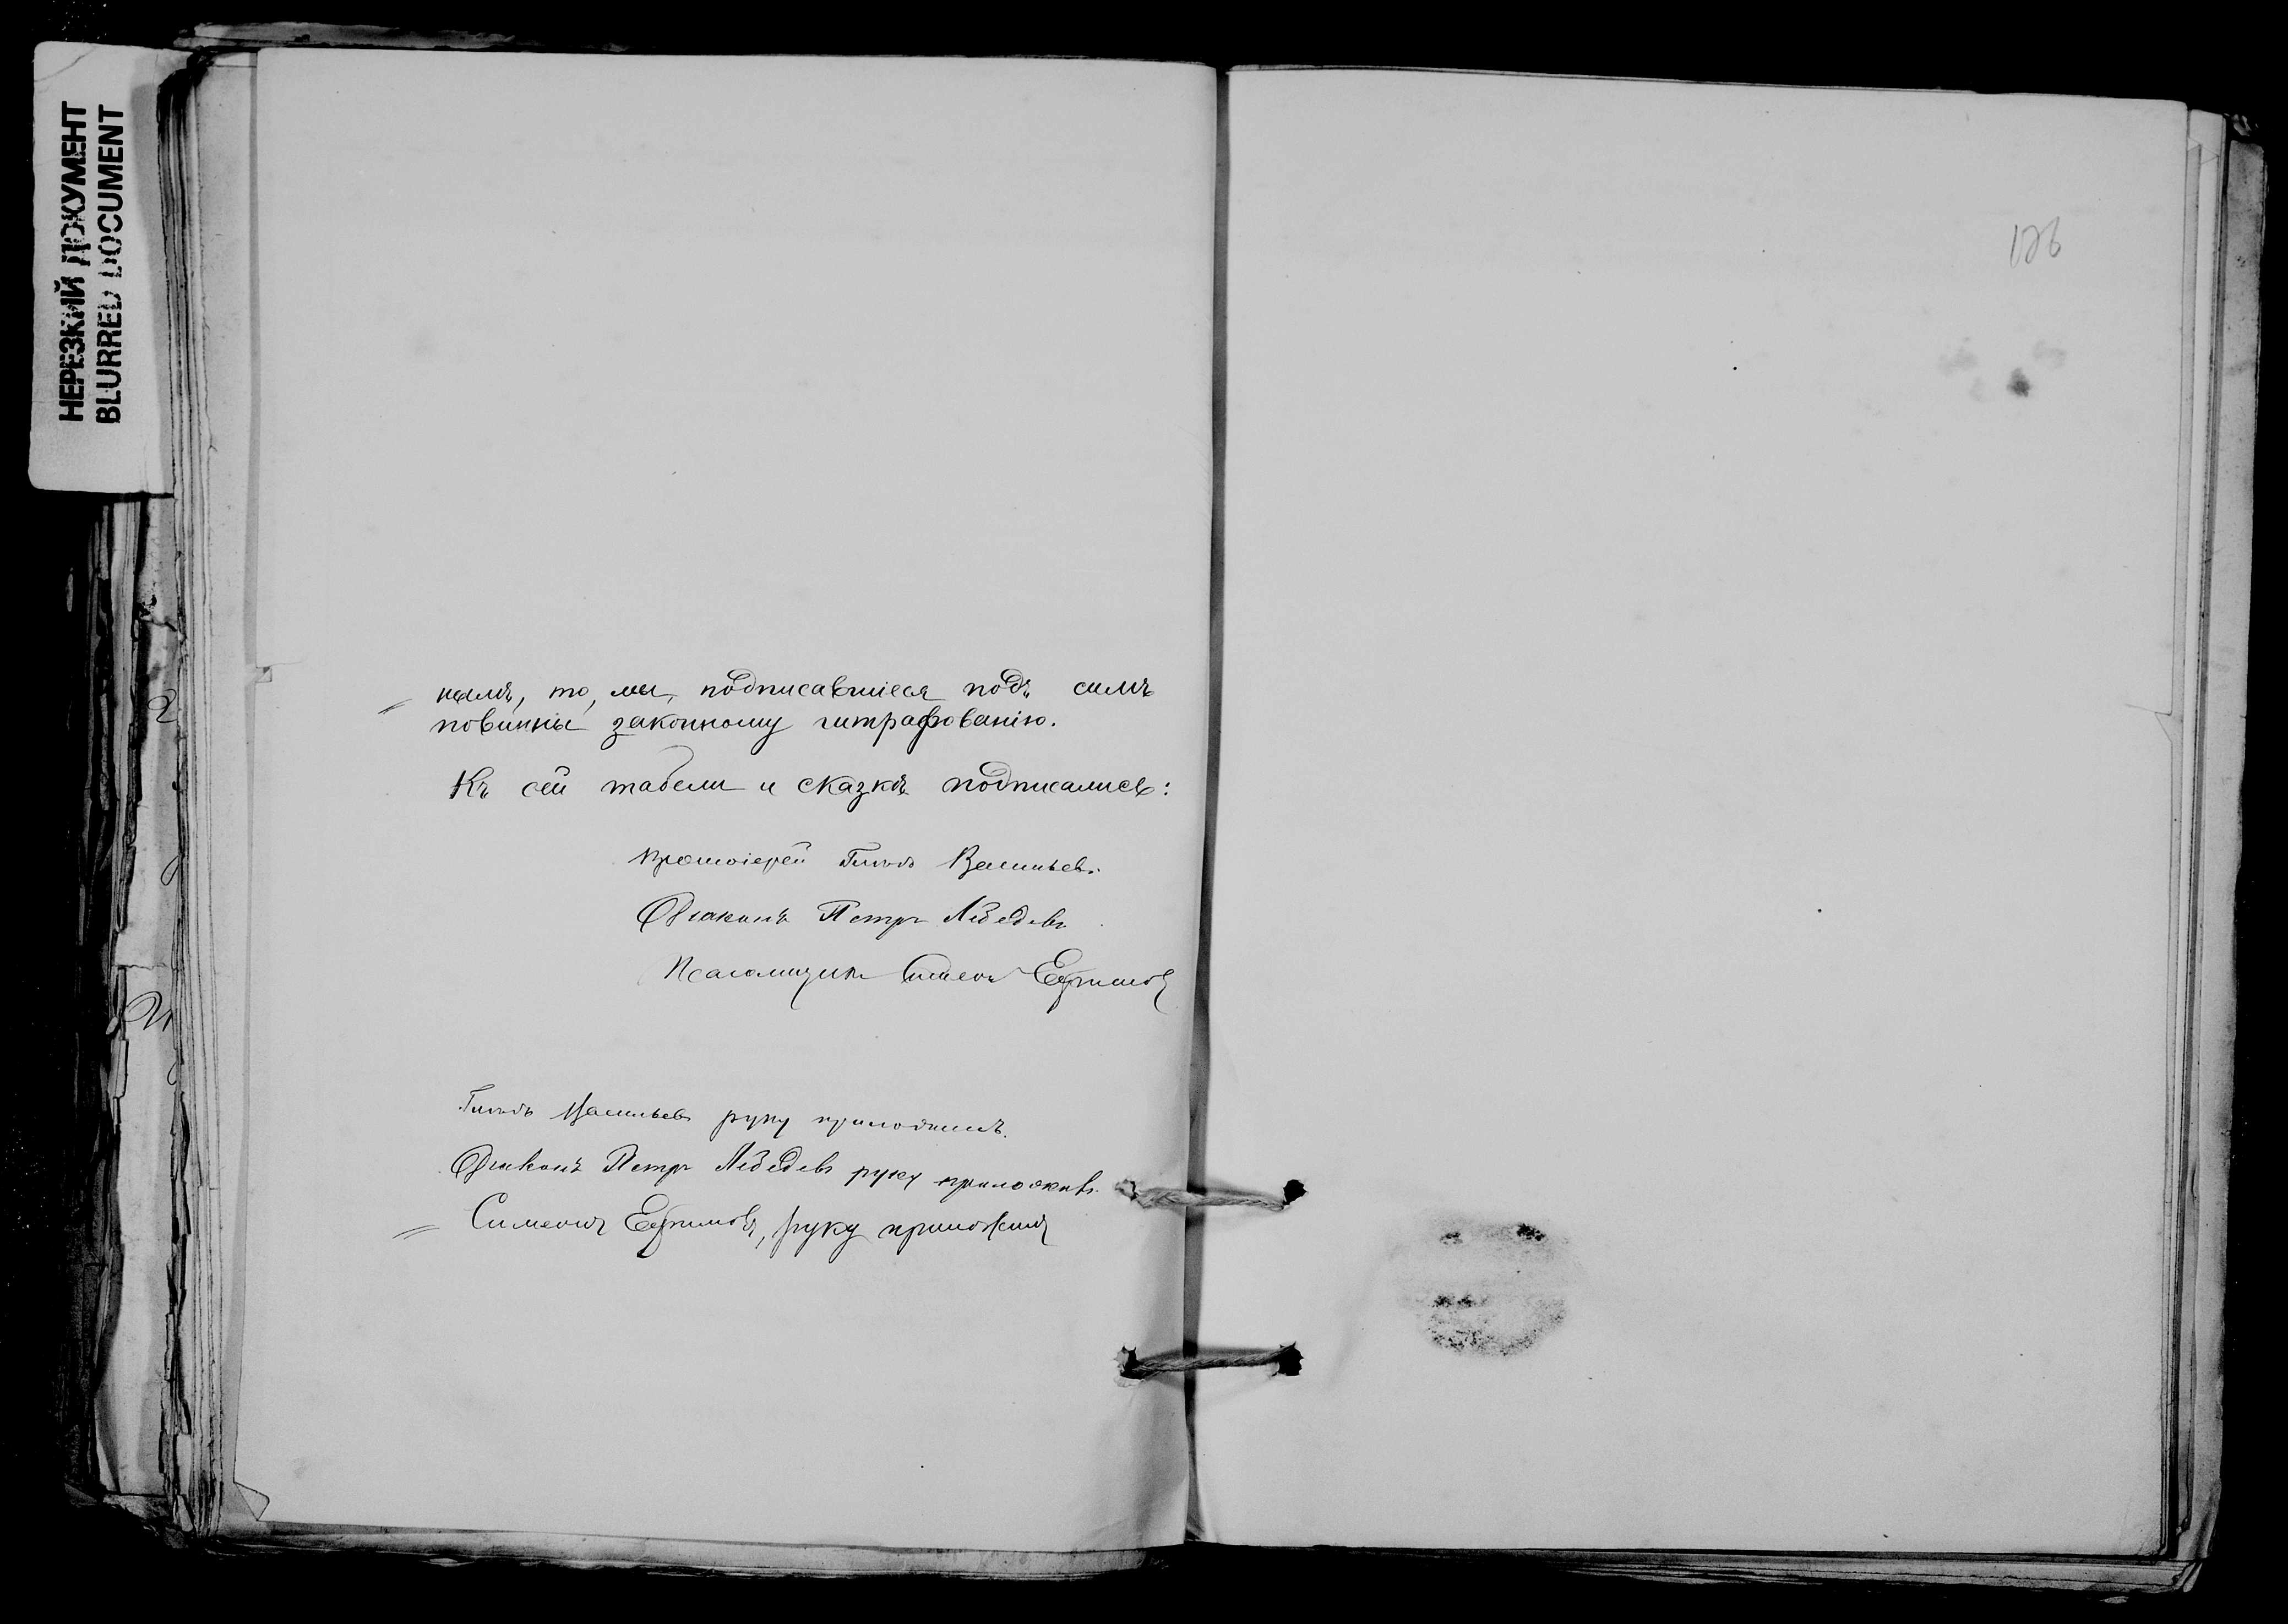 НЕРЕЗКИЙ ДОКУМЕНТ
BLURRED DOCUMENT
126
намъ, то, мы, подписавшіеся подъ симъ
повинны законному штрафованію.
Къ сей табели и сказкѣ подписались:
Протоіерей Васильевъ.
Діаконъ Петръ Лебедевъ
Псаломщикъ Симеонъ Ефимовъ
Васильевъ руку приложилъ.
Діаконъ Петръ Лебедевъ руку приложилъ.
Симеонъ Ефимовъ, руку приложилъ